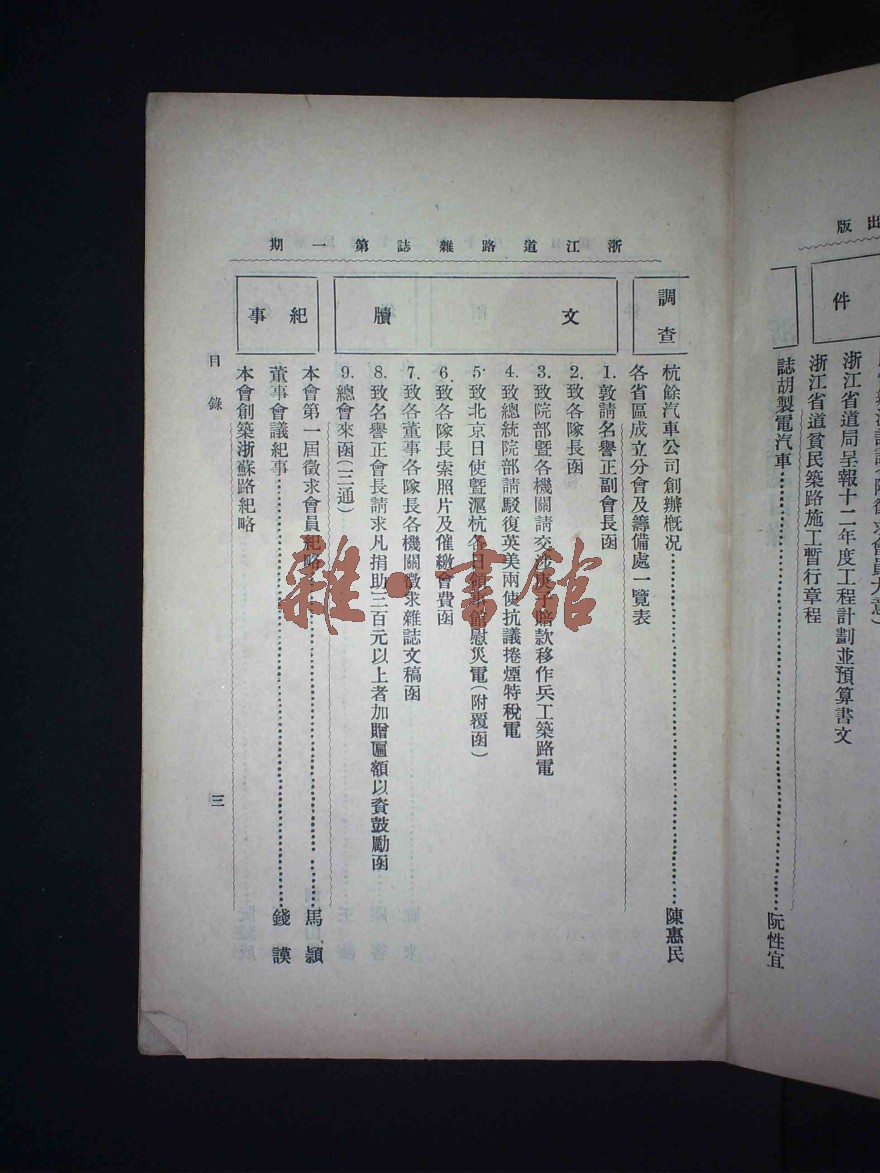 出版
件
求會員大意)
浙江省道局呈報十二年度工程計劃並預算書文
浙江省道貧民築路施工暫行章程
誌胡製電汽車……阮性宜
浙江道路雜誌第一期
調查
杭餘汽車公司創辦概況……陳惠民
各省區成立分會及籌備處一覽表
文牘
1.敦請名譽正副會長函
2.致各隊長函
3.致院部暨各機關請交涉庚子賠款移作兵工築路電
4.致總統院部請駁復英美兩使抗議捲煙特稅電
5.致北京日使暨滬杭各日領事館慰災電(附覆函)
6.致各隊長索照片及催繳會費函
7.致各董事各隊長各機關徵求雜誌文稿函
8.致名譽正會長請求凡捐助三百元以上者加贈匾額以資鼓勵函
9.總會來函(三通)
紀事
本會第一屆徵求會員紀略……馬顥
董事會議紀事……錢謨
本會創築浙蘇路紀略
目錄
三
雜·書館